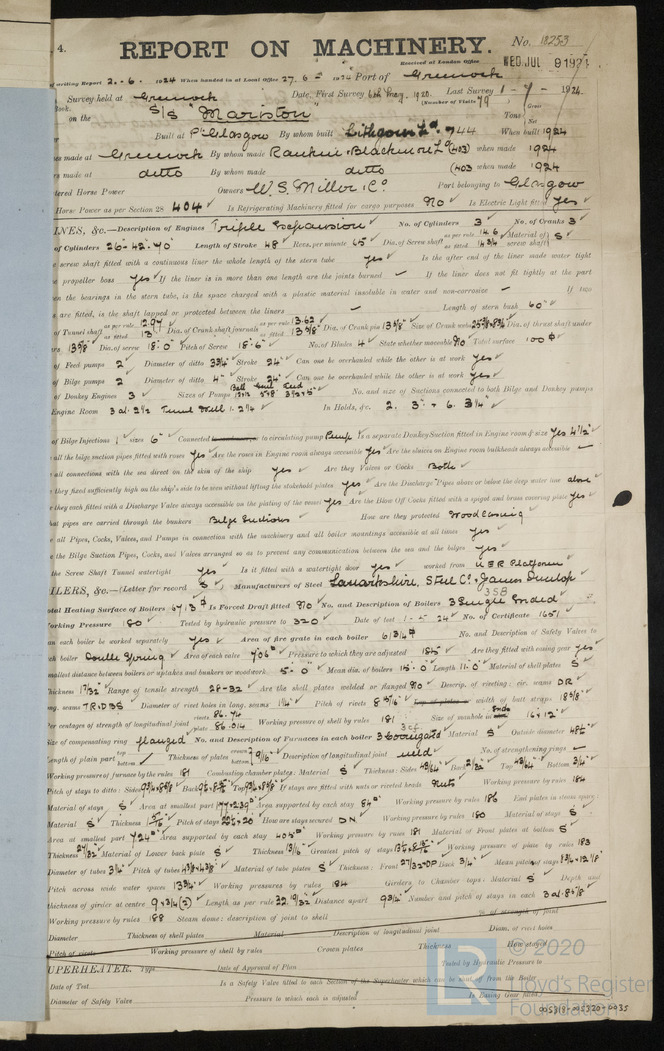 4.
REPORT ON MACHINERY.
No. 18253
Received at London Office WED. JUL 9 1924
writing Report 2.-6.1924 When handed in at Local Office 27.6-1924 Port of Greenock
Survey held at Greenock Date, First Survey 1920. Last Survey 1-7-1924.
Book. (Number of Visits 79)
on the S/S "Mariston" Tons Gross Net
Built at Pt Glasgow By whom built Lithgows Ld. 744 When built 1924
made at Greenock By whom made Rankin & Blackmore Ld (403) when made 1924
made at ditto By whom made ditto (403 when made 1924
Horse Power Owners W. S. Miller & Co. Port belonging to Glasgow
Horse Power as per Section 28 404 Is Refrigerating Machinery fitted for cargo purposes No Is Electric Light fitted Yes
INES, &c.—Description of Engines Triple Expansion No. of Cylinders 3 No. of Cranks 3
of Cylinders 26-42-70 Length of Stroke 48 Revs. per minute 65 Dia. of Screw shaft as per rule 14.6 as fitted 14 3/4 Material of screw shaft S
screw shaft fitted with a continuous liner the whole length of the stern tube yes Is the after end of the liner made water tight
propeller boss yes If the liner is in more than one length are the joints burned — If the liner does not fit tightly at the part
the bearings in the stern tube, is the space charged with a plastic material insoluble in water and non-corrosive — If two
are fitted, is the shaft lapped or protected between the liners — Length of stern bush 60"
of Tunnel shaft as per rule 12.97 as fitted 13 Dia. of Crank shaft journals as per rule 13.62 as fitted 13 5/8 Dia. of Crank pin 13 5/8 Size of Crank webs Dia. of thrust shaft under
13 5/8 Dia. of screw 18-0 Pitch of Screw 18-6 No. of Blades 4 State whether moveable No Total surface 100
of Feed pumps 2 Diameter of ditto 3 3/4 Stroke 24 Can one be overhauled while the other is at work yes
of Bilge pumps 2 Diameter of ditto 4 Stroke 24 Can one be overhauled while the other is at work yes
of Donkey Engines 3 Sizes of Pumps No. and size of Suctions connected to both Bilge and Donkey pumps
Engine Room 3 at 2 1/2 Tunnel Well 1-2 1/4 In Holds, &c. 2. 3" & 6. 3 1/4"
of Bilge Injections 1 sizes 6" Connected to circulating pump Pump Is a separate Donkey Suction fitted in Engine room & size yes 4 1/2"
all the bilge suction pipes fitted with roses yes Are the roses in Engine room always accessible yes Are the sluices on Engine room bulkheads always accessible —
all connections with the sea direct on the skin of the ship yes Are they Valves or Cocks Both
they fixed sufficiently high on the ship's side to be seen without lifting the stokehold plates yes Are the Discharge Pipes above or below the deep water line above
they each fitted with a Discharge Valve always accessible on the plating of the vessel yes Are the Blow Off Cocks fitted with a spigot and brass covering plate yes
pipes are carried through the bunkers Bilge Suctions How are they protected Wood Casing
all Pipes, Cocks, Valves, and Pumps in connection with the machinery and all boiler mountings accessible at all times yes
the Bilge Suction Pipes, Cocks, and Valves arranged so as to prevent any communication between the sea and the bilges yes
the Screw Shaft Tunnel watertight yes Is it fitted with a watertight door yes worked from U E R Platform
ILERS, &c.—(Letter for record S) Manufacturers of Steel Lanarkshire Steel Co. & James Dunlop
3 SB
Total Heating Surface of Boilers 6713 Is Forced Draft fitted No No. and Description of Boilers 3 Single Ended
Working Pressure 180 Tested by hydraulic pressure to 320 Date of test 1-5-24 No. of Certificate 1651
Can each boiler be worked separately yes Area of fire grate in each boiler 61 3/4 No. and Description of Safety Valves to
each boiler Double Spring Area of each valve 7.06 Pressure to which they are adjusted 185 Are they fitted with easing gear yes
Smallest distance between boilers or uptakes and bunkers or woodwork 5-0 Mean dia. of boilers 15-0 Length 11-0 Material of shell plates S
Thickness 1 7/32 Range of tensile strength 28-32 Are the shell plates welded or flanged No Descrip. of riveting: cir. seams DR
long. seams TR.DBS Diameter of rivet holes in long. seams 1 1/4 Pitch of rivets width of butt straps 18 5/8
Per centages of strength of longitudinal joint rivets 86.74 plate 86.014 Working pressure of shell by rules 181 Size of manhole in end 16 x 12
Size of compensating ring flanged No. and Description of Furnaces in each boiler 3 Corrugated Material S Outside diameter
Length of plain part top bottom Thickness of plates crown bottom 9/16 Description of longitudinal joint weld No. of strengthening rings —
Working pressure of furnace by the rules 181 Combustion chamber plates: Material S Thickness: Sides 43/64 Back 21/32 Top 43/64 Bottom 3/4
Pitch of stays to ditto: Sides Back Top If stays are fitted with nuts or riveted heads Nuts Working pressure by rules 184
Material of stays S Area at smallest part Area supported by each stay 84 Working pressure by rules 186 End plates in steam space
Material S Thickness Pitch of stays How are stays secured DN Working pressure by rules 180 Material of stays S
Area at smallest part 7.24 Area supported by each stay Working pressure by rules 181 Material of Front plates at bottom S
Thickness 27/32 Material of Lower back plate S Thickness 13/16 Greatest pitch of stays Working pressure of plate by rules 183
Diameter of tubes 3 1/4 Pitch of tubes Material of tube plates S Thickness: Front 27/32 Back 3/4 Mean pitch of stays
Pitch across wide water spaces 13 3/4 Working pressures by rules 184 Girders to Chamber tops: Material S Depth and
thickness of girder at centre 9 x 3/4 (2) Length as per rule 32 19/32 Distance apart 9 3/4 Number and pitch of stays in each 3 at 8 5/8
Working pressure by rules 188 Steam dome: description of joint to shell % of strength of joint
Diameter Thickness of shell plates Material Description of longitudinal joint Diam. of rivet holes
Pitch of rivets Working pressure of shell by rules Crown plates Thickness How stayed
UPERHEATER. Type Date of Approval of Plan Tested by Hydraulic Pressure to
Date of Test Is a Safety Valve fitted to each Section of the Superheater which can be shut off from the Boiler
Diameter of Safety Valve Pressure to which each is adjusted Is Easing Gear fitted
© 2020
Lloyd's Register
Foundation
005319-005320-0035